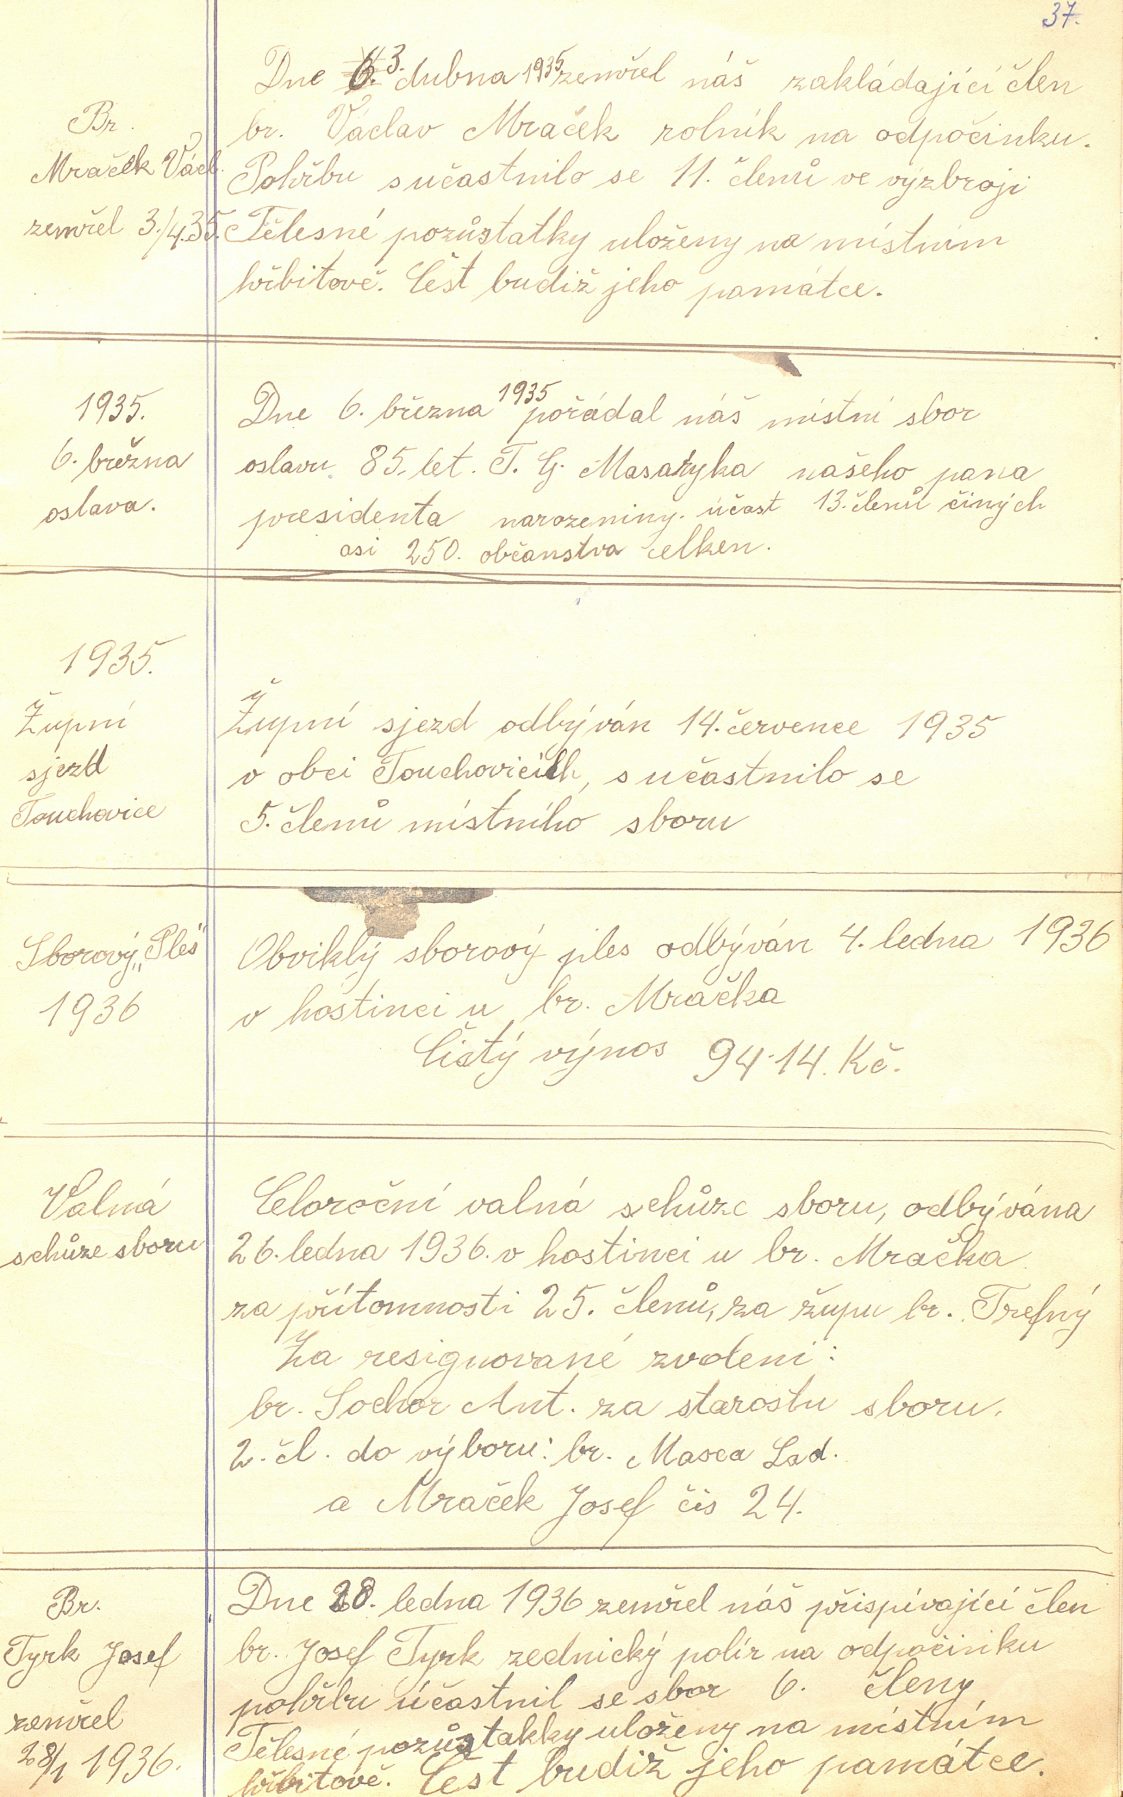 37.
Br.
Mraček Václ.
zemřel 3./4.35.
Dne 3. dubna 1935 zemřel náš zakládající člen
br. Václav Mraček rolník na odpočinku.
Pohřbu sučastnilo se 11. členů ve výzbroji
Tělesné pozůstatky uloženy na místním
hřbitově. Čest budiž jeho památce.
1935.
6. března
oslava.
Dne 6. března 1935 pořádal náš místní sbor
oslavu 85. let. T. G. Masaryka našeho pana
presidenta narozeniny. účast 13. členů činých
asi 250. občanstva celken.
1935.
Župní
sjezd
Touchovice
Župní sjezd odbýván 14. července 1935
v obci Touchovicích, sučastnilo se
5. členů místního sboru
Sborový „Ples"
1936
Obviklý sborový ples odbýván 4. ledna 1936
v hostinci u br. Mračka
Čistý výnos 94·14. Kč.
Valná
schůze sboru
Celoroční valná schůze sboru, odbývána
26. ledna 1936. v hostinci u br. Mračka
za přítomnosti 25. členů, za župu br. Trefný
Za resignované zvoleni:
br. Sochor Ant. za starostu sboru.
2. čl. do výboru: br. Masca Lad.
a Mraček Josef čís 24.
Br.
Tyrk Josef
zemřel
28/1 1936.
Dne 28. ledna 1936 zemřel náš přispívající člen
br. Josef Tyrk zednický polír na odpočinku
pohřbu účastnil se sbor 6. členy
Tělesné pozůstakky uloženy na místním
hřbitově. Čest budiž jeho památce.